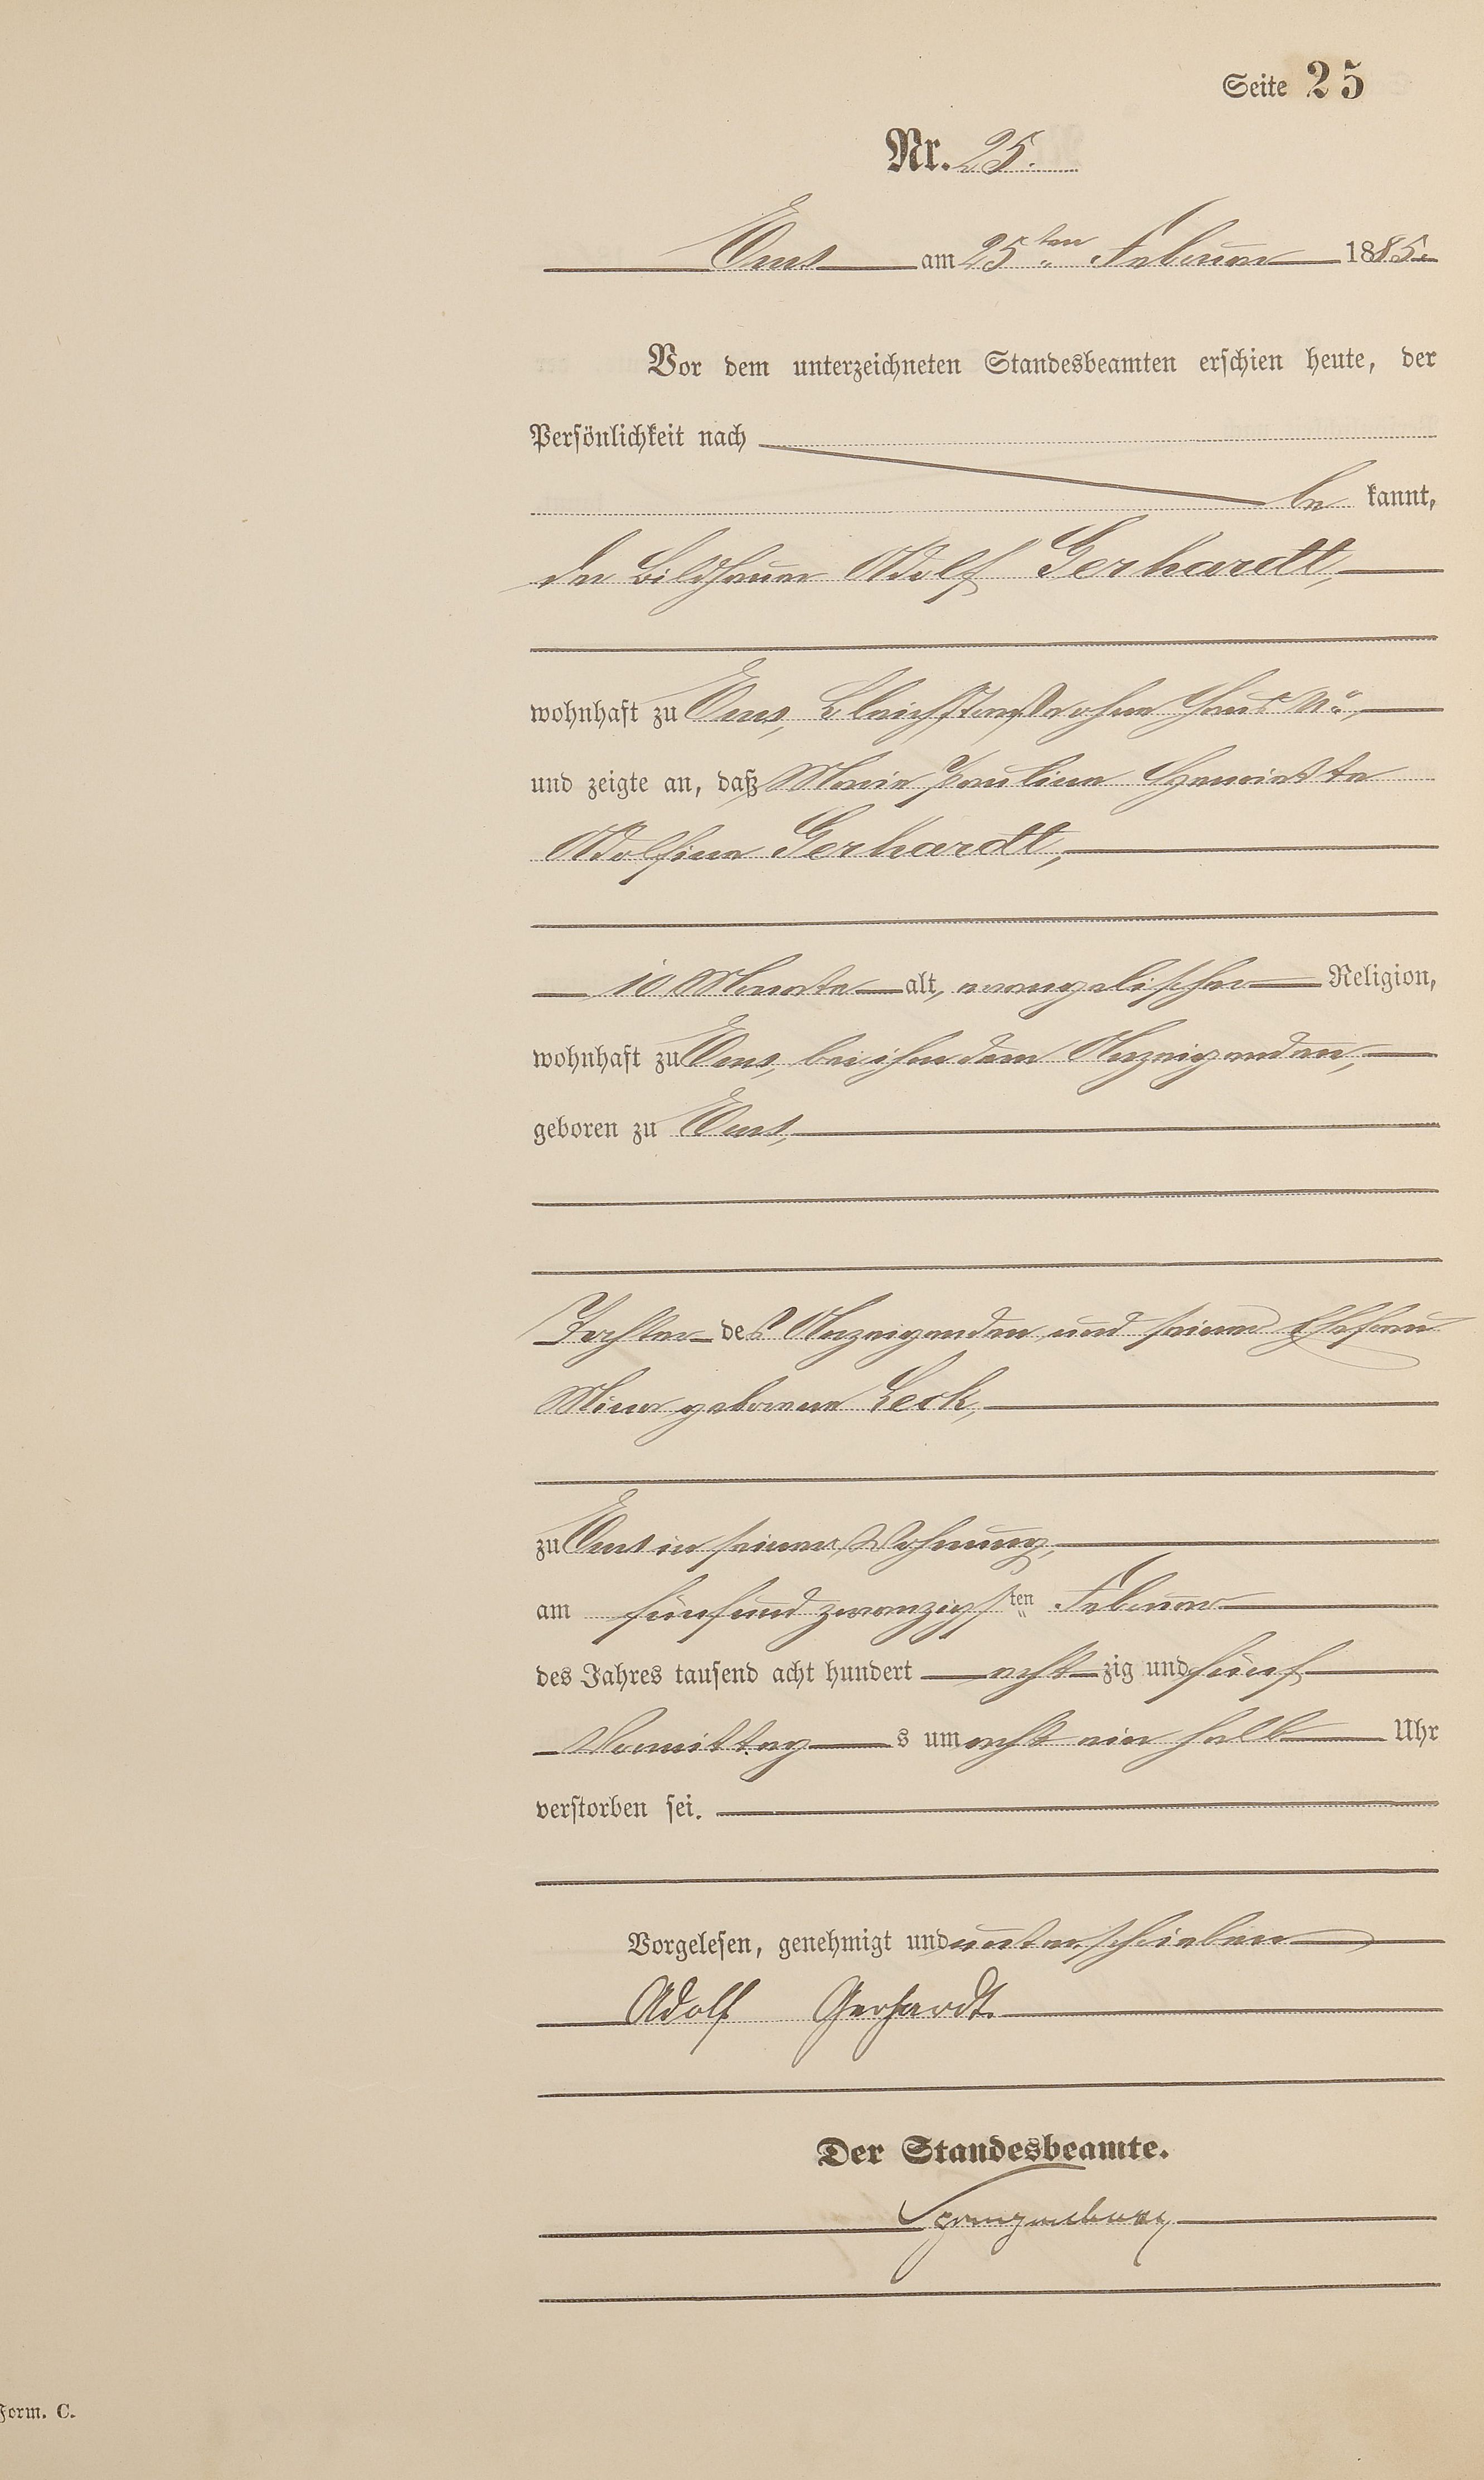 Seite 25
Nr. 25.
Ems am 25ten Februar 1885.
Vor dem unterzeichneten Standesbeamten erschien heute, der
Persönlichkeit nach
be kannt,
der Bildhauer Adolf Gerhardt,
wohnhaft zu Ems, Bleichstraße ohne Haus No.,
und zeigte an, daß Marie Pauline Henriette
Adolfine Gerhardt,
10 Monate alt, evangelischer Religion,
wohnhaft zu Ems, bei ihm dem Anzeigenden,
geboren zu Ems,
Tochter des Anzeigenden und seiner Ehefrau
Mina geborene Leck,
zu Ems in seiner Wohnung,
am fünfundzwanzigsten Februar
des Jahres tausend acht hundert achtzig und fünf
Vormittags um acht ein halb Uhr
verstorben sei.
Vorgelesen, genehmigt und unterschrieben
Adolf Gerhardt.
Der Standesbeamte.
Spangenberg
Form. C.